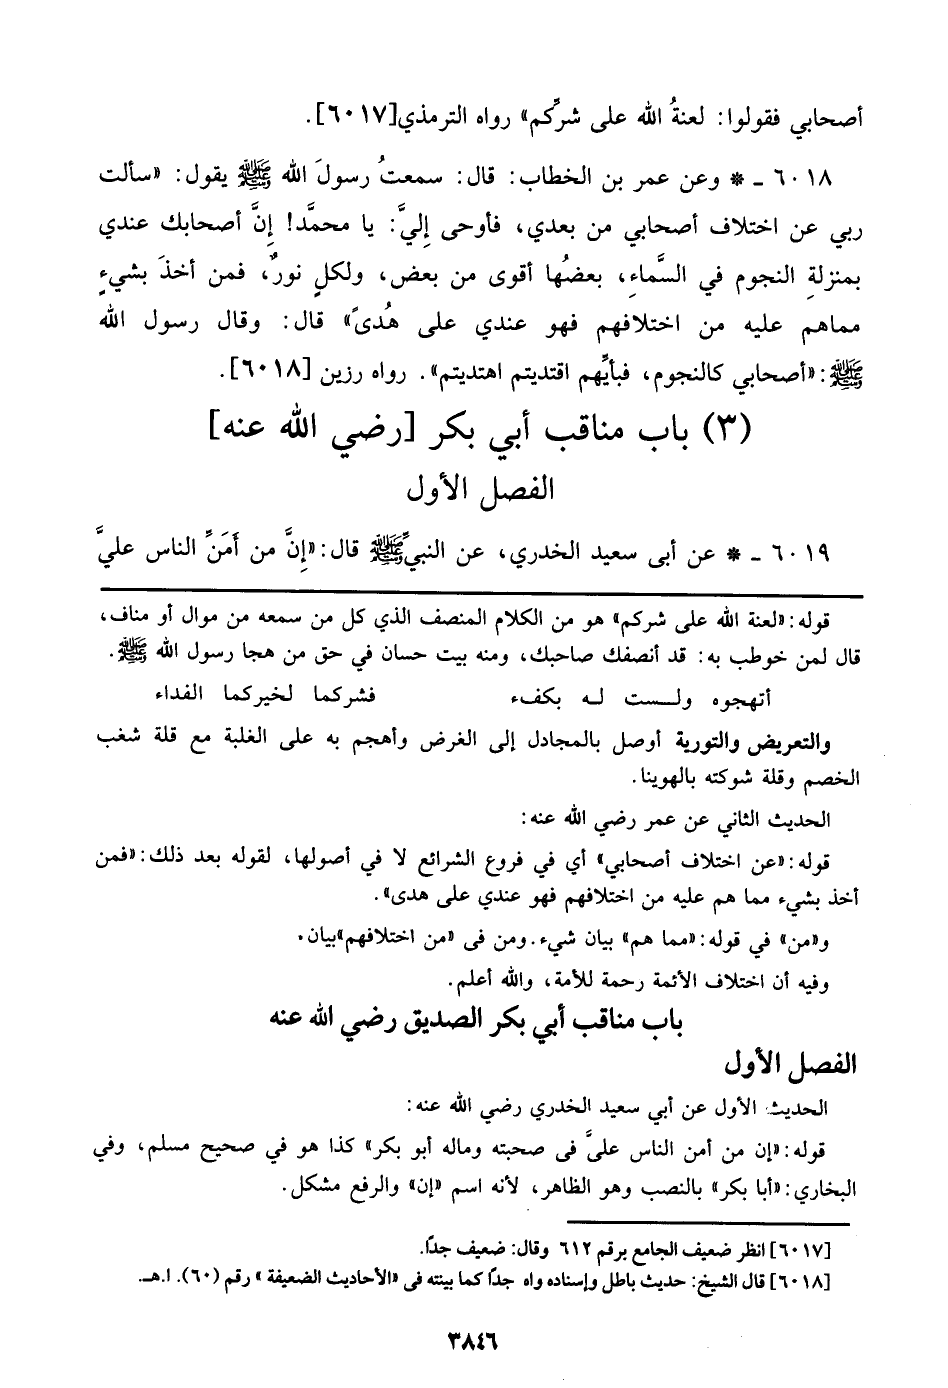 أصحابي فقولوا: لعنةُ الله على شركِّم» رواه الترمذي[٦٠١٧].
٦٠١٨ ـ * وعن عمر بن الخطاب: قال: سمعتُ رسولَ الله ﷺ يقول: «سألت
ربي عن اختلاف أصحابي من بعدي، فأوحى إليَّ: يا محمَّد! إنَّ أصحابك عندي
بمنزلةِ النجوم في السَّماءِ، بعضُها أقوى من بعض، ولكلٍ نورٌ، فمن أخذَ بشيءٍ
مماهم عليه من اختلافهم فهو عندي على هُدىً» قال: وقال رسول الله
ﷺ:«أصحابي كالنجوم، فبأيِّهم اقتديتم اهتديتم». رواه رزين [٦٠١٨].
(٣) باب مناقب أبي بكر [رضي الله عنه]
الفصل الأول
٦٠١٩ ـ * عن أبى سعيد الخدري، عن النبيِّ ﷺ قال:«إنَّ من أَمَنِّ الناس عليَّ
قوله:«لعنة الله على شركم» هو من الكلام المنصف الذي كل من سمعه من موال أو مناف،
قال لمن خوطب به: قد أنصفك صاحبك، ومنه بيت حسان في حق من هجا رسول الله ﷺ.
أتهجوه ولـست لـه بكفء فشركما لخيركما الفداء
والتعريض والتورية أوصل بالمجادل إلى الغرض وأهجم به على الغلبة مع قلة شغب
الخصم وقلة شوكته بالهوينا.
الحديث الثاني عن عمر رضي الله عنه:
قوله:«عن اختلاف أصحابي» أي في فروع الشرائع لا في أصولها، لقوله بعد ذلك:«فمن
أخذ بشيء مما هم عليه من اختلافهم فهو عندي على هدى».
و«من» في قوله:«مما هم» بيان شيء. ومن فى «من اختلافهم»بيان.
وفيه أن اختلاف الأئمة رحمة للأمة، والله أعلم.
باب مناقب أبي بكر الصديق رضي الله عنه
الفصل الأول
الحديث الأول عن أبي سعيد الخدري رضي الله عنه:
قوله:«إن من أمن الناس علىَّ فى صحبته وماله أبو بكر» كذا هو في صحيح مسلم، وفي
البخاري:«أبا بكر» بالنصب وهو الظاهر، لأنه اسم «إن» والرفع مشكل.
[٦٠١٧] انظر ضعيف الجامع برقم ٦١٢ وقال: ضعيف جدًا.
[٦٠١٨] قال الشيخ: حديث باطل وإسناده واه جدًا كما بينته فى «الأحاديث الضعيفة» رقم (٦٠). ا.هـ.
٣٨٤٦